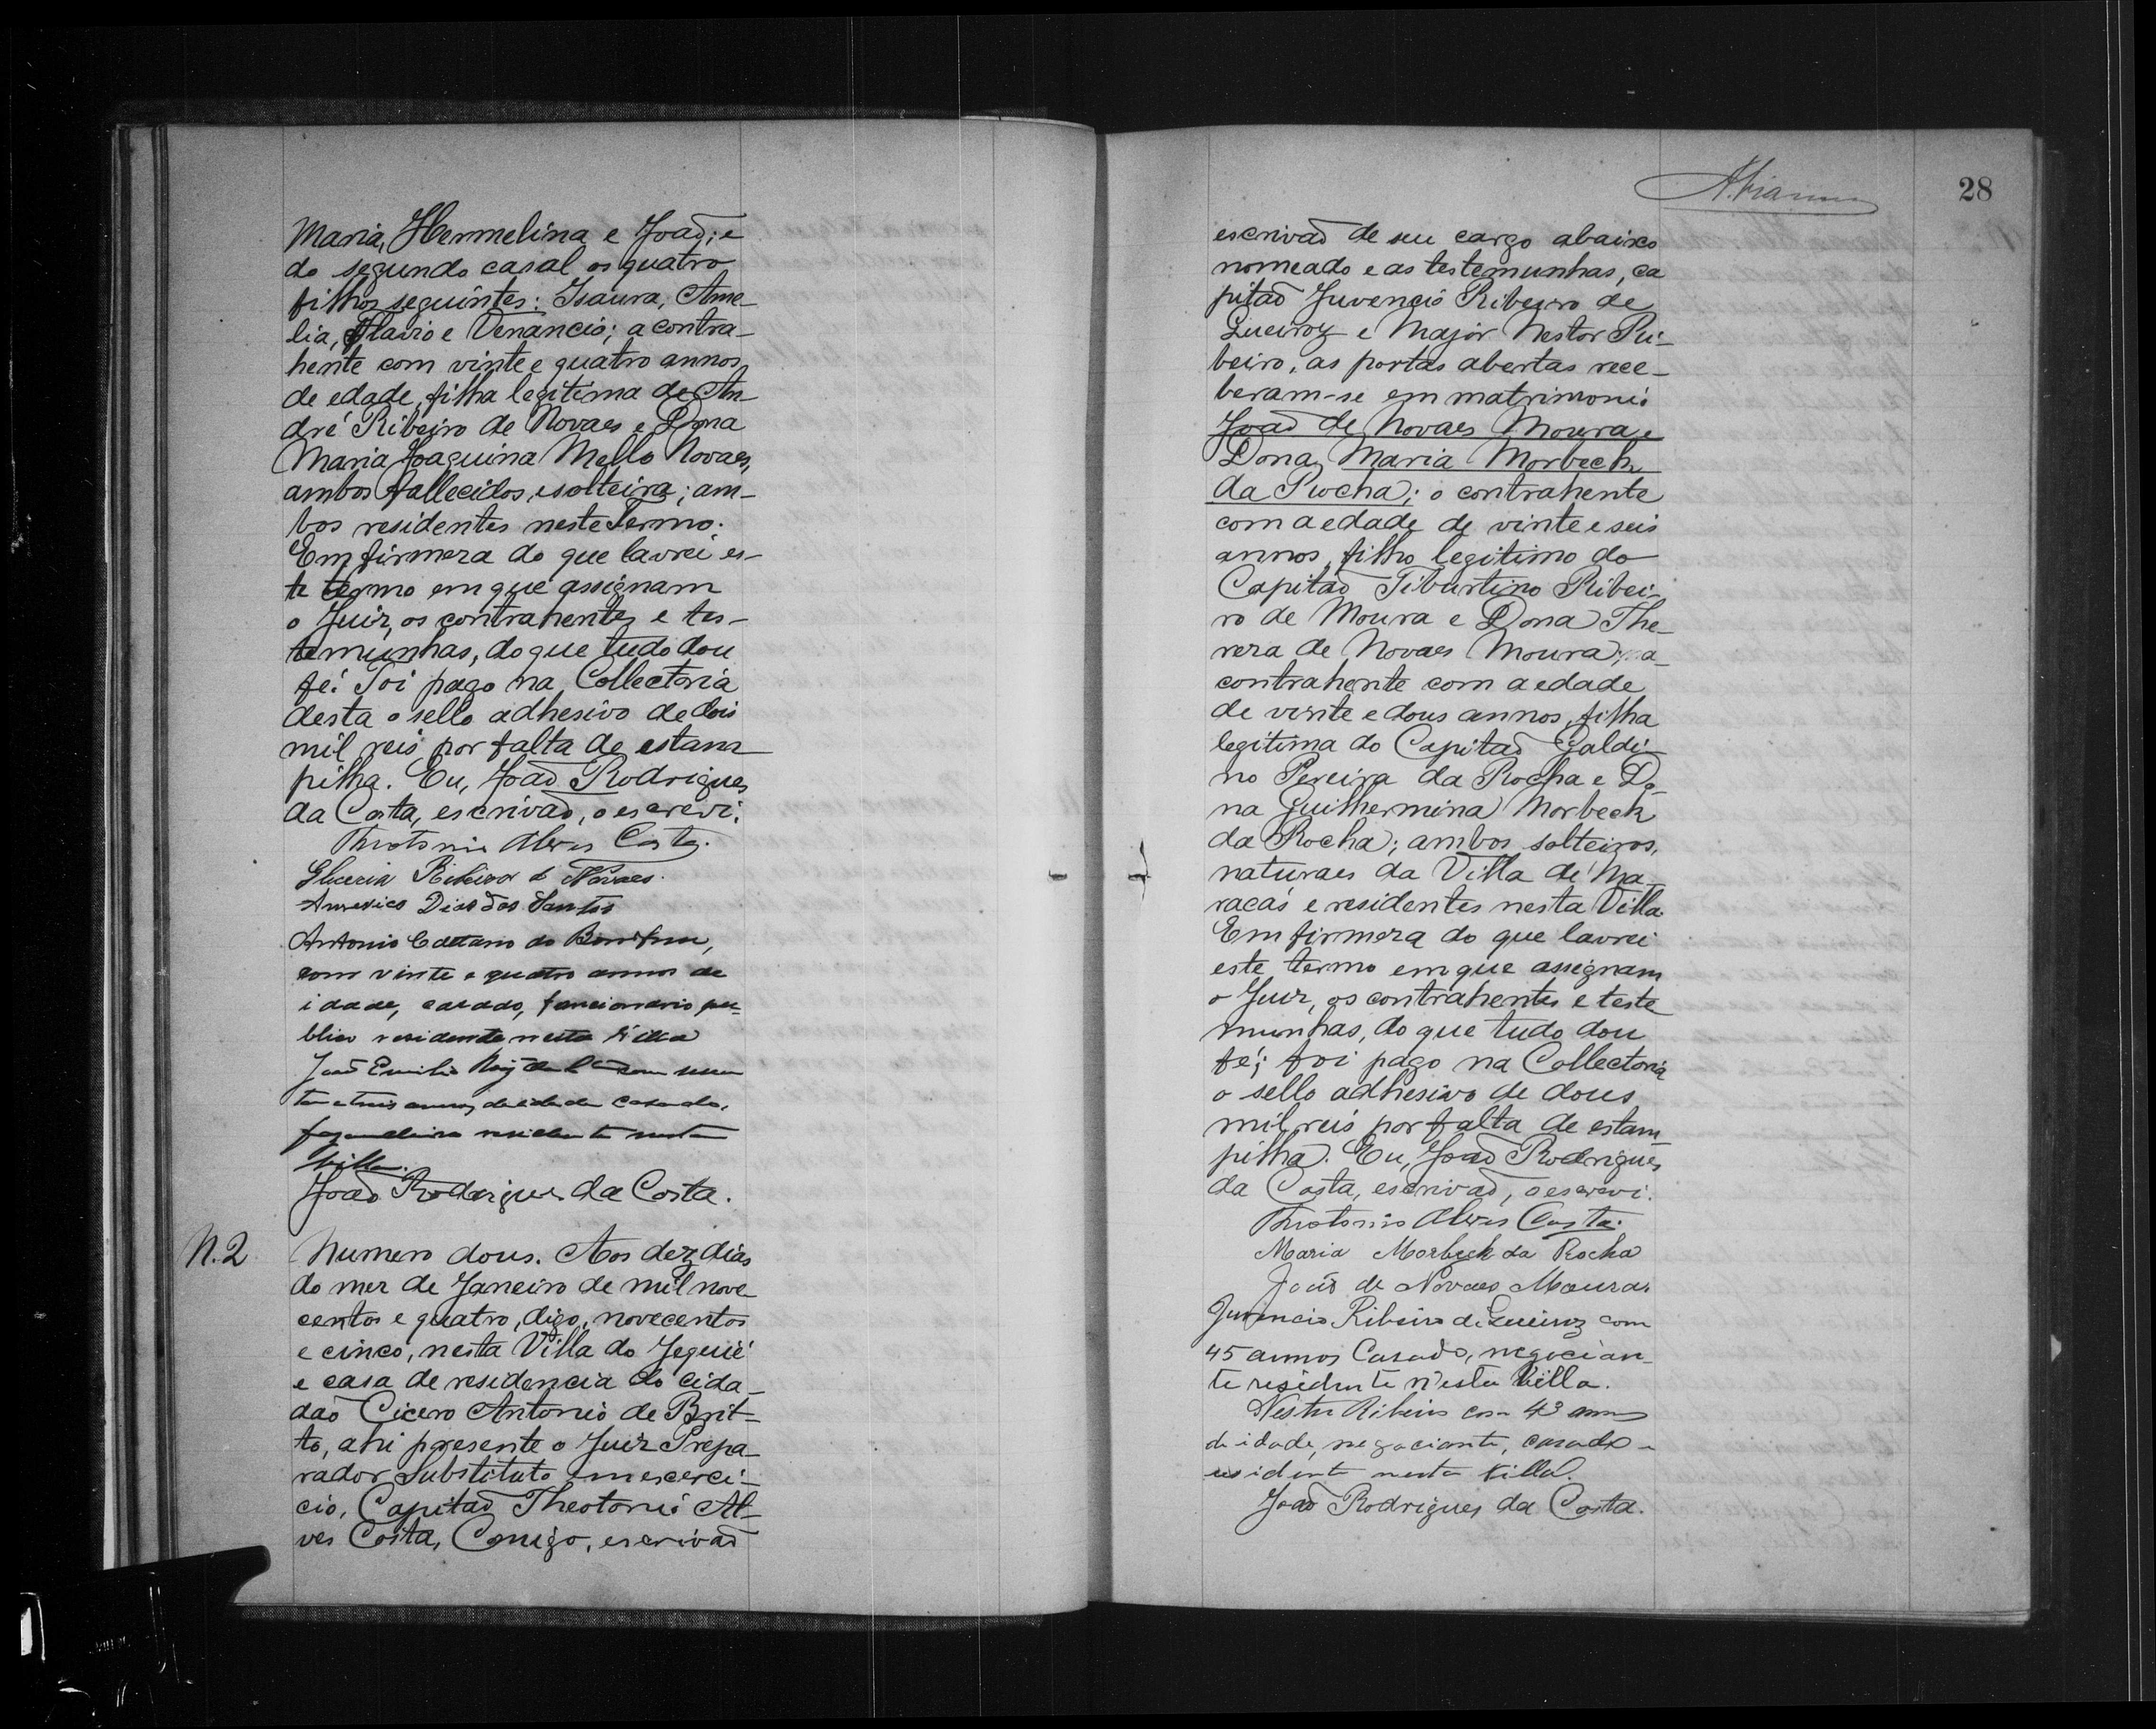 Maria, Hermelina e João; e
do segundo casal os quatro
filhos seguintes: Isaura, Ame-
lia, Flavio e Venancio; a contra-
hente com vinte e quatro annos
de edade, filha legitima de An-
dré Ribeiro de Novaes e Dona
Maria Joaquina Mello Novaes,
ambos fallecidos, e solteira; am-
bos residentes neste Termo.
Em firmeza do que lavrei es-
te termo em que assignam
o Juiz, os contrahentes e tes-
temunhas, do que tudo dou
fé. Foi pago na Collectoria
desta o sello adhesivo de dois
mil reis por falta de estam
pilha. Eu, João Rodrigues
da Costa, escrivão, o escrevi.
Theotonio Alves Costa.
Gliceria Ribeiro de Novaes.
Americo Dias dos Santos
Antonio Caetano do Bomfim,
com vinte e quatro annos de
idade, casado, funcionario pu-
blico residente nesta Villa
João Emilio
ta e tres annos de idade casado,
fazendeiro residente nesta
Villa.
João Rodrigues da Costa.
N. 2
Numero dous. Aos dez dias
do mez de Janeiro de mil nove
centos e quatro, digo, novecentos
e cinco, nesta Villa do Jequié
e casa de residencia do cida-
dão Cicero Antonio de Brit-
to, ahi presente o Juiz Prepa-
rador Substituto em exerci-
cio, Capitão Theotonio Al-
ves Costa, Comigo, escrivão
28
escrivão de seu cargo abaixo
nomeado e as testemunhas, ca
pitão Juvencio Ribeiro de
Queiroz e Major Nestor Ri-
beiro, as portas abertas rece-
beram-se em matrimonio
João de Novaes Moura e
Dona Maria Morbeck
da Rocha; o contrahente
com a edade de vinte e seis
annos, filho legitimo do
Capitão Tiburtino Ribei-
ro de Moura e Dona The-
reza de Novaes Moura; a
contrahente com a edade
de vinte e dous annos, filha
legitima do Capitão Galdi-
no Pereira da Rocha e Do-
na Guilhermina Morbeck
da Rocha; ambos solteiros,
naturaes da Villa de Ma-
racás e residentes nesta Villa.
Em firmeza do que lavrei
este termo em que assignam
o Juiz, os contrahentes e teste
munhas, do que tudo dou
fé; foi pago na Collectoria
o sello adhesivo de dous
mil reis por falta de estam
pilha. Eu, João Rodrigues
da Costa, escrivão, o escrevi.
Theotonio Alves Costa.
Maria Morbeck da Rocha
João de Novaes Moura.
Juvencio Ribeiro de Queiroz com
45 annos Casado, negocian-
te residente n'esta Villa.
Nestor Ribeiro com 43 annos
de idade, negociante, casado e
residente nesta Villa.
João Rodrigues da Costa.